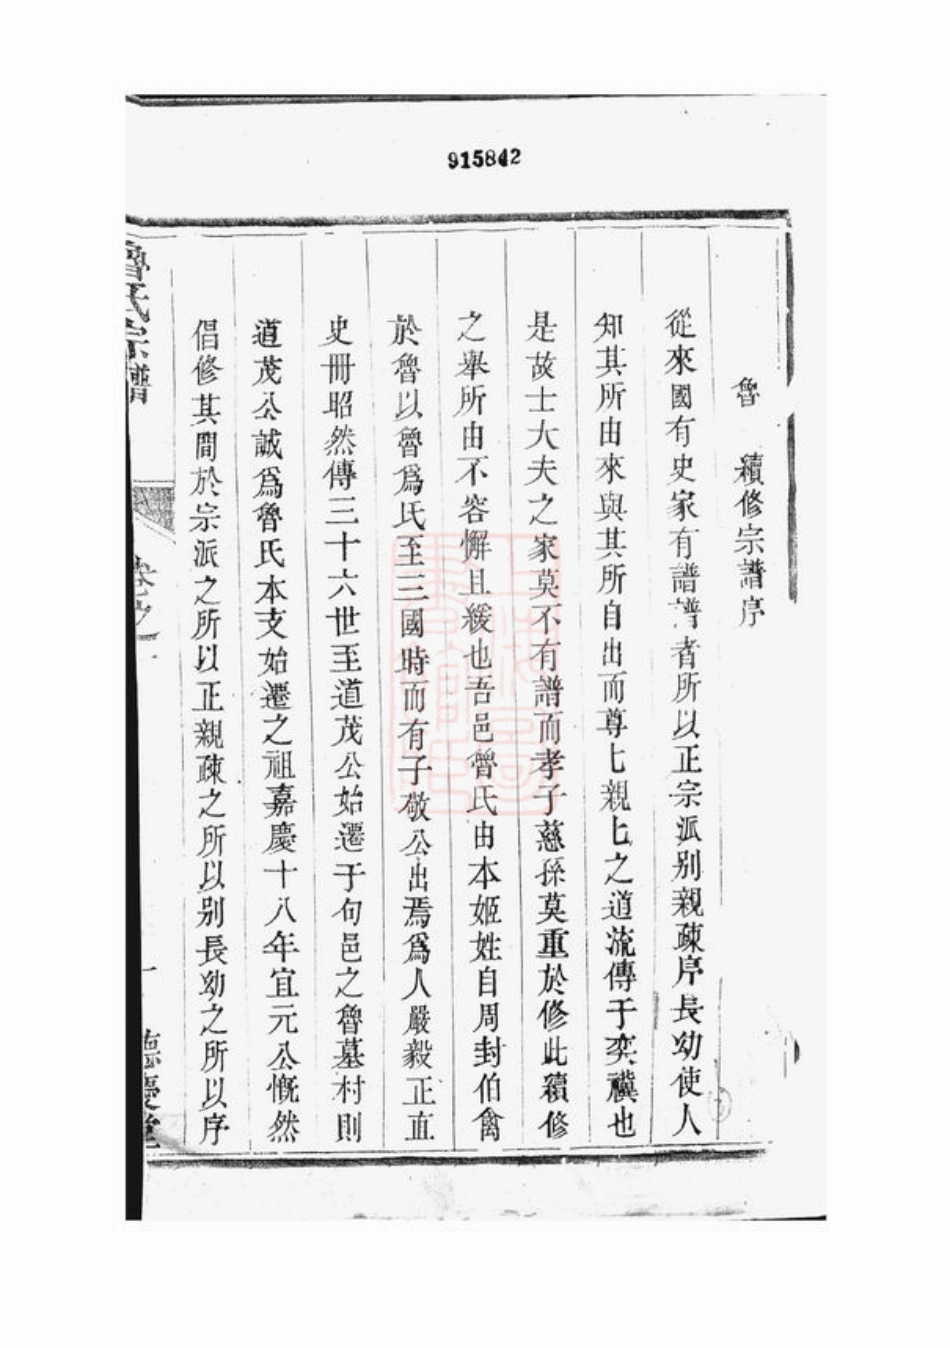 915842
魯　續修宗譜序
從來國有史家有譜譜者所以正宗派别親疎序長幼使人
知其所由來與其所自出而尊七親七之道流傳于奕禩也
是故士大夫之家莫不有譜而孝子慈孫莫重於修此續修
之舉所由不容懈且緩也吾邑魯氏由本姬姓自周封伯禽
於魯以魯爲氏至三國時而有子敬公出焉爲人嚴毅正直
史冊昭然傳三十六世至道茂公始遷于句邑之魯墓村則
道茂公誠爲魯氏本支始遷之祖嘉慶十八年宜元公慨然
倡修其間於宗派之所以正親疎之所以别長幼之所以序
魯氏宗譜
一